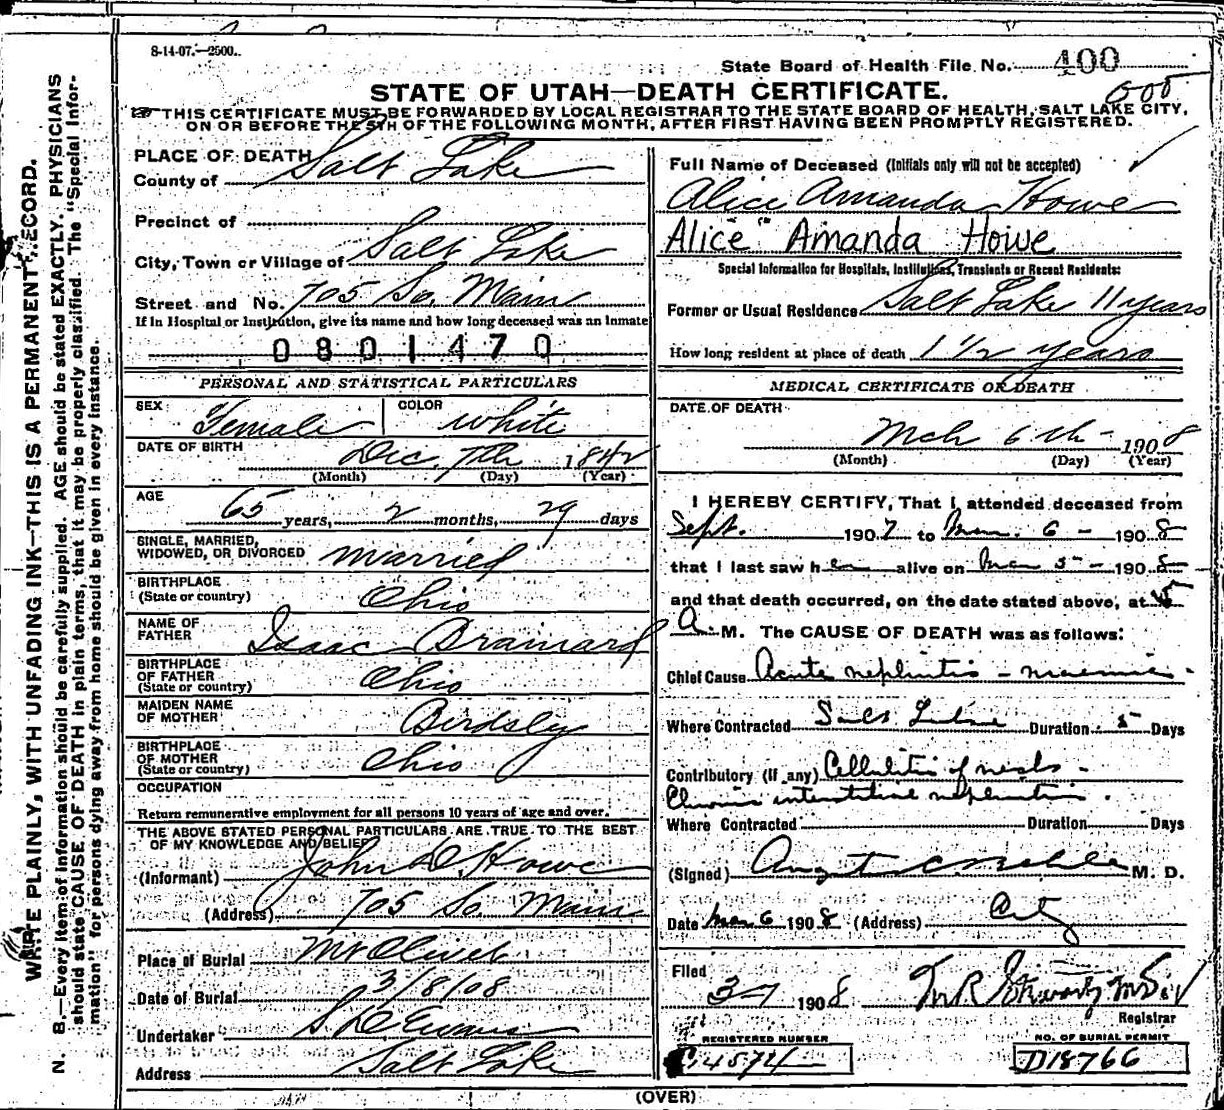 8-14-07.—2500..
State Board of Health File No. 400
STATE OF UTAH—DEATH CERTIFICATE.
THIS CERTIFICATE MUST BE FORWARDED BY LOCAL REGISTRAR TO THE STATE BOARD OF HEALTH, SALT LAKE CITY,
ON OR BEFORE THE 5TH OF THE FOLLOWING MONTH, AFTER FIRST HAVING BEEN PROMPTLY REGISTERED.
WRITE PLAINLY, WITH UNFADING INK—THIS IS A PERMANENT RECORD.
N. B.—Every item of information should be carefully supplied. AGE should be stated EXACTLY. PHYSICIANS
should state CAUSE OF DEATH in plain terms, that it may be properly classified. The "Special Infor-
mation" for persons dying away from home should be given in every instance.
PLACE OF DEATH
County of Salt Lake
Precinct of
City, Town or Village of Salt Lake
Street and No. 705 So. Main
If in Hospital or Institution, give its name and how long deceased was an Inmate
0801470
PERSONAL AND STATISTICAL PARTICULARS
SEX Female COLOR White
DATE OF BIRTH Dec. 7th 1842
(Month) (Day) (Year)
AGE
65 years, 2 months, 29 days
SINGLE, MARRIED,
WIDOWED, OR DIVORCED Married
BIRTHPLACE
(State or country) Ohio
NAME OF
FATHER Isaac Brainard
BIRTHPLACE
OF FATHER
(State or country) Ohio
MAIDEN NAME
OF MOTHER Birdsly
BIRTHPLACE
OF MOTHER
(State or country) Ohio
OCCUPATION
Return remunerative employment for all persons 10 years of age and over.
THE ABOVE STATED PERSONAL PARTICULARS ARE TRUE TO THE BEST
OF MY KNOWLEDGE AND BELIEF
(Informant) John D. Howe
(Address) 705 So. Main
Place of Burial Mt Olivet
Date of Burial 3/8/08
Undertaker S. D. Evans
Address Salt Lake
Full Name of Deceased (Initials only will not be accepted)
Alice Amanda Howe
Alice Amanda Howe
Special Information for Hospitals, Institutions, Transients or Recent Residents:
Former or Usual Residence Salt Lake 11 years
How long resident at place of death 1 1/2 years
MEDICAL CERTIFICATE OF DEATH
DATE OF DEATH
Mch 6th 1908
(Month) (Day) (Year)
I HEREBY CERTIFY, That I attended deceased from
Sept. 1907 to Mar. 6 - 1908
that I last saw her alive on Mar 5 - 1908
and that death occurred, on the date stated above, at
A. M. The CAUSE OF DEATH was as follows:
Chief Cause Acute nephritis -
Where Contracted Salt Lake Duration 5 Days
Contributory (if any) Cellulitis of neck -
Chronic interstitial nephritis.
Where Contracted Duration Days
(Signed) M. D.
Date Mar 6 1908 (Address) City
Filed
3-7 1908
Registrar
REGISTERED NUMBER
C4574
NO. OF BURIAL PERMIT
D18766
(OVER)